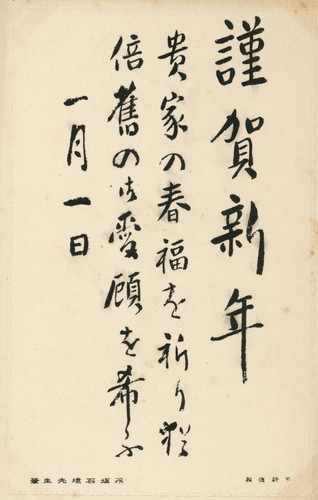 謹賀新年
貴家の春福を祈り猶
倍舊の御愛顧を希ふ
一月一日
不許復製
石埭先生筆